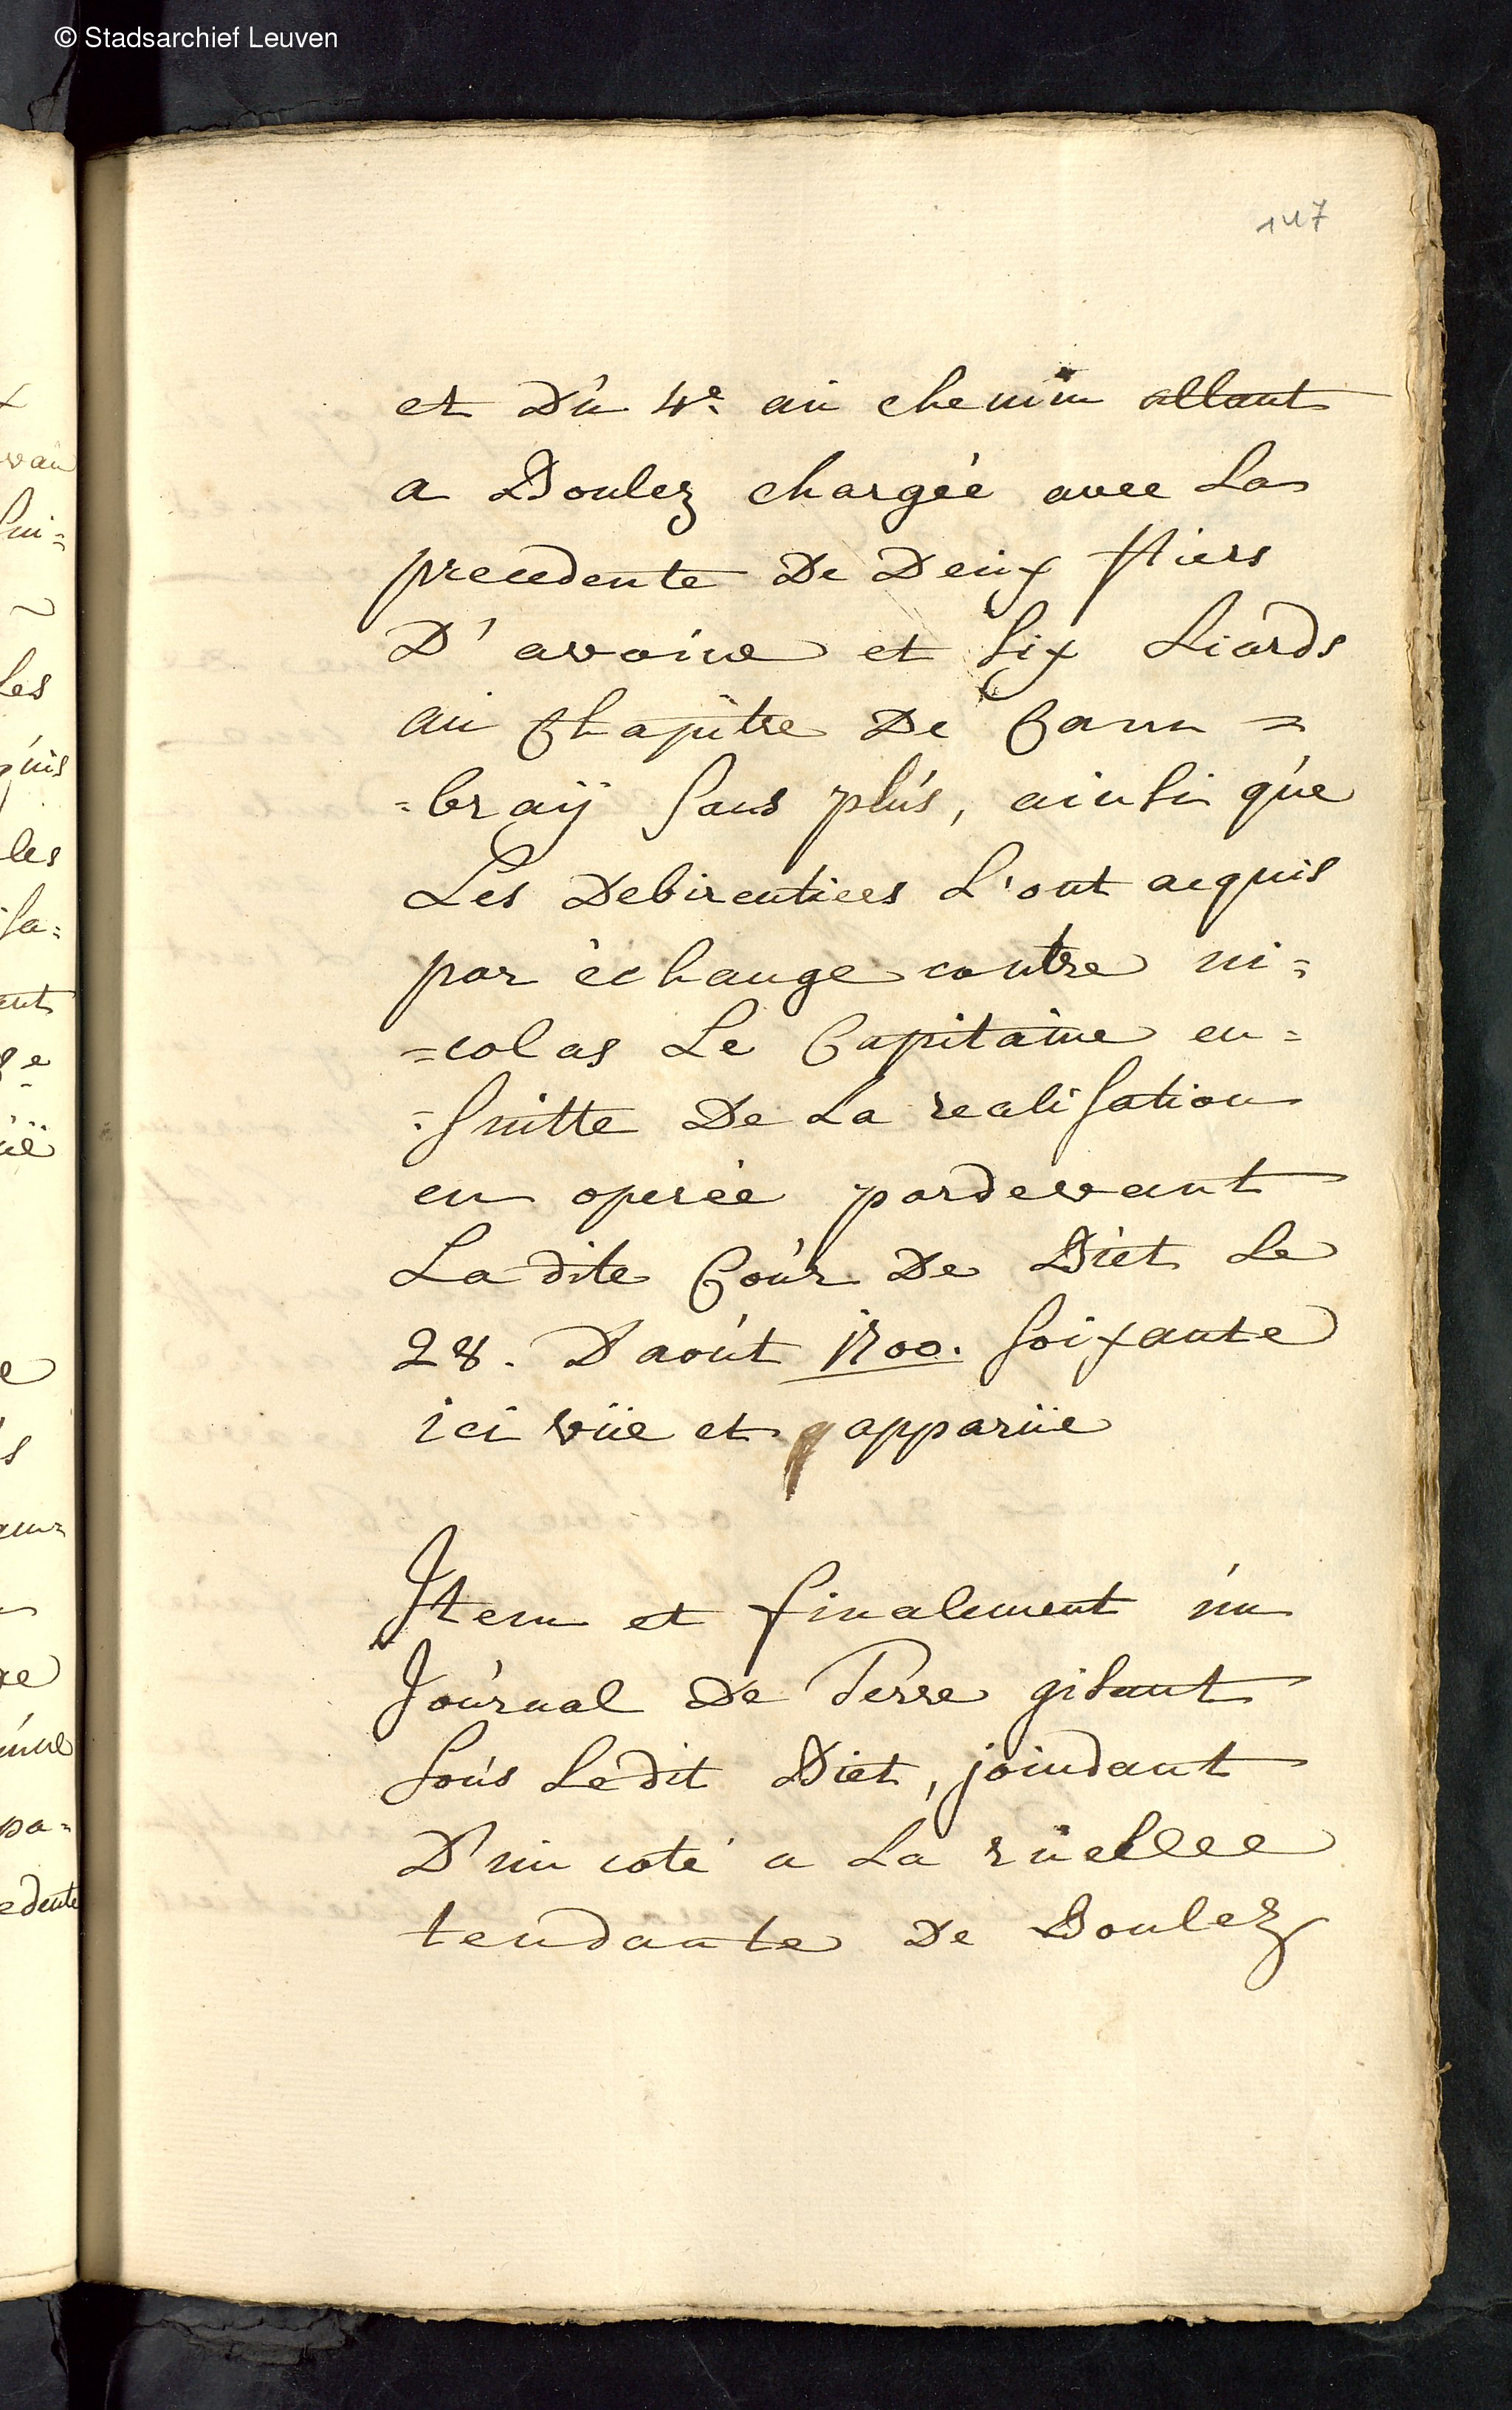 © Stadsarchief Leuven
147
et Dú 4e. aú chemin allant
a Doulez chargéé avec La
precedente De Deúx stiers
D'avoine et six Liards
aú Chapitre De Cam =
=braÿ sans plús, ainsi qúe
Les Debirentices L'ont acquis
par échange contre ni=
=colas Le Capitaine en=
=suitte De La realisation
en operéé pardevant
La dite Coúr De Diét Le
28. D'août 1700. soixante
ici vúe et apparúe
Item et finalement ún
Joúrnal De Terre gisant
soús Lédit Diét, joindant
D'ún coté a La rúellee
tendante De Doulez